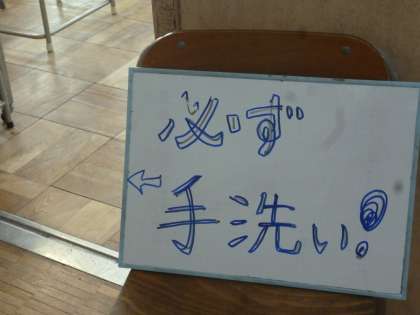 必ず
手洗い!